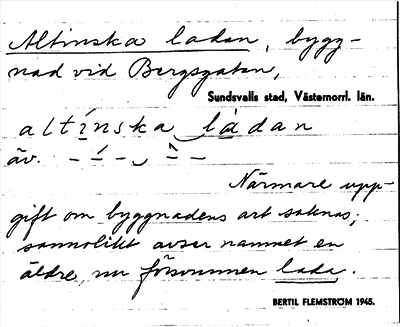 Altinska ladan, bygg-
nad vid Bergsgatan,
Sundsvalls stad, Västernorrl. län.
altínska ládan
äv. – –́ – ⏑ –̀ –
Närmare upp-
gift om byggnadens art saknas;
sannolikt avser namnet en
äldre, nu försvunnen lada.
BERTIL FLEMSTRÖM 1945.